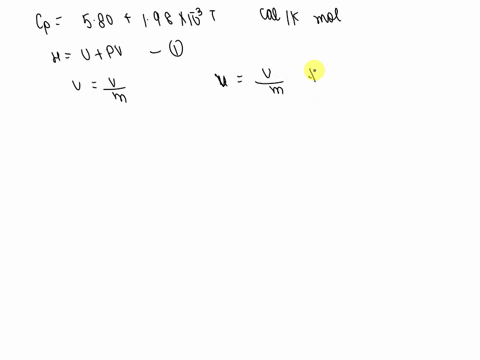 Cp = 5.80 + 1.98 × 10⁻³ T cal/K mol
H = U + PV — ①
v = V/m u = U/m